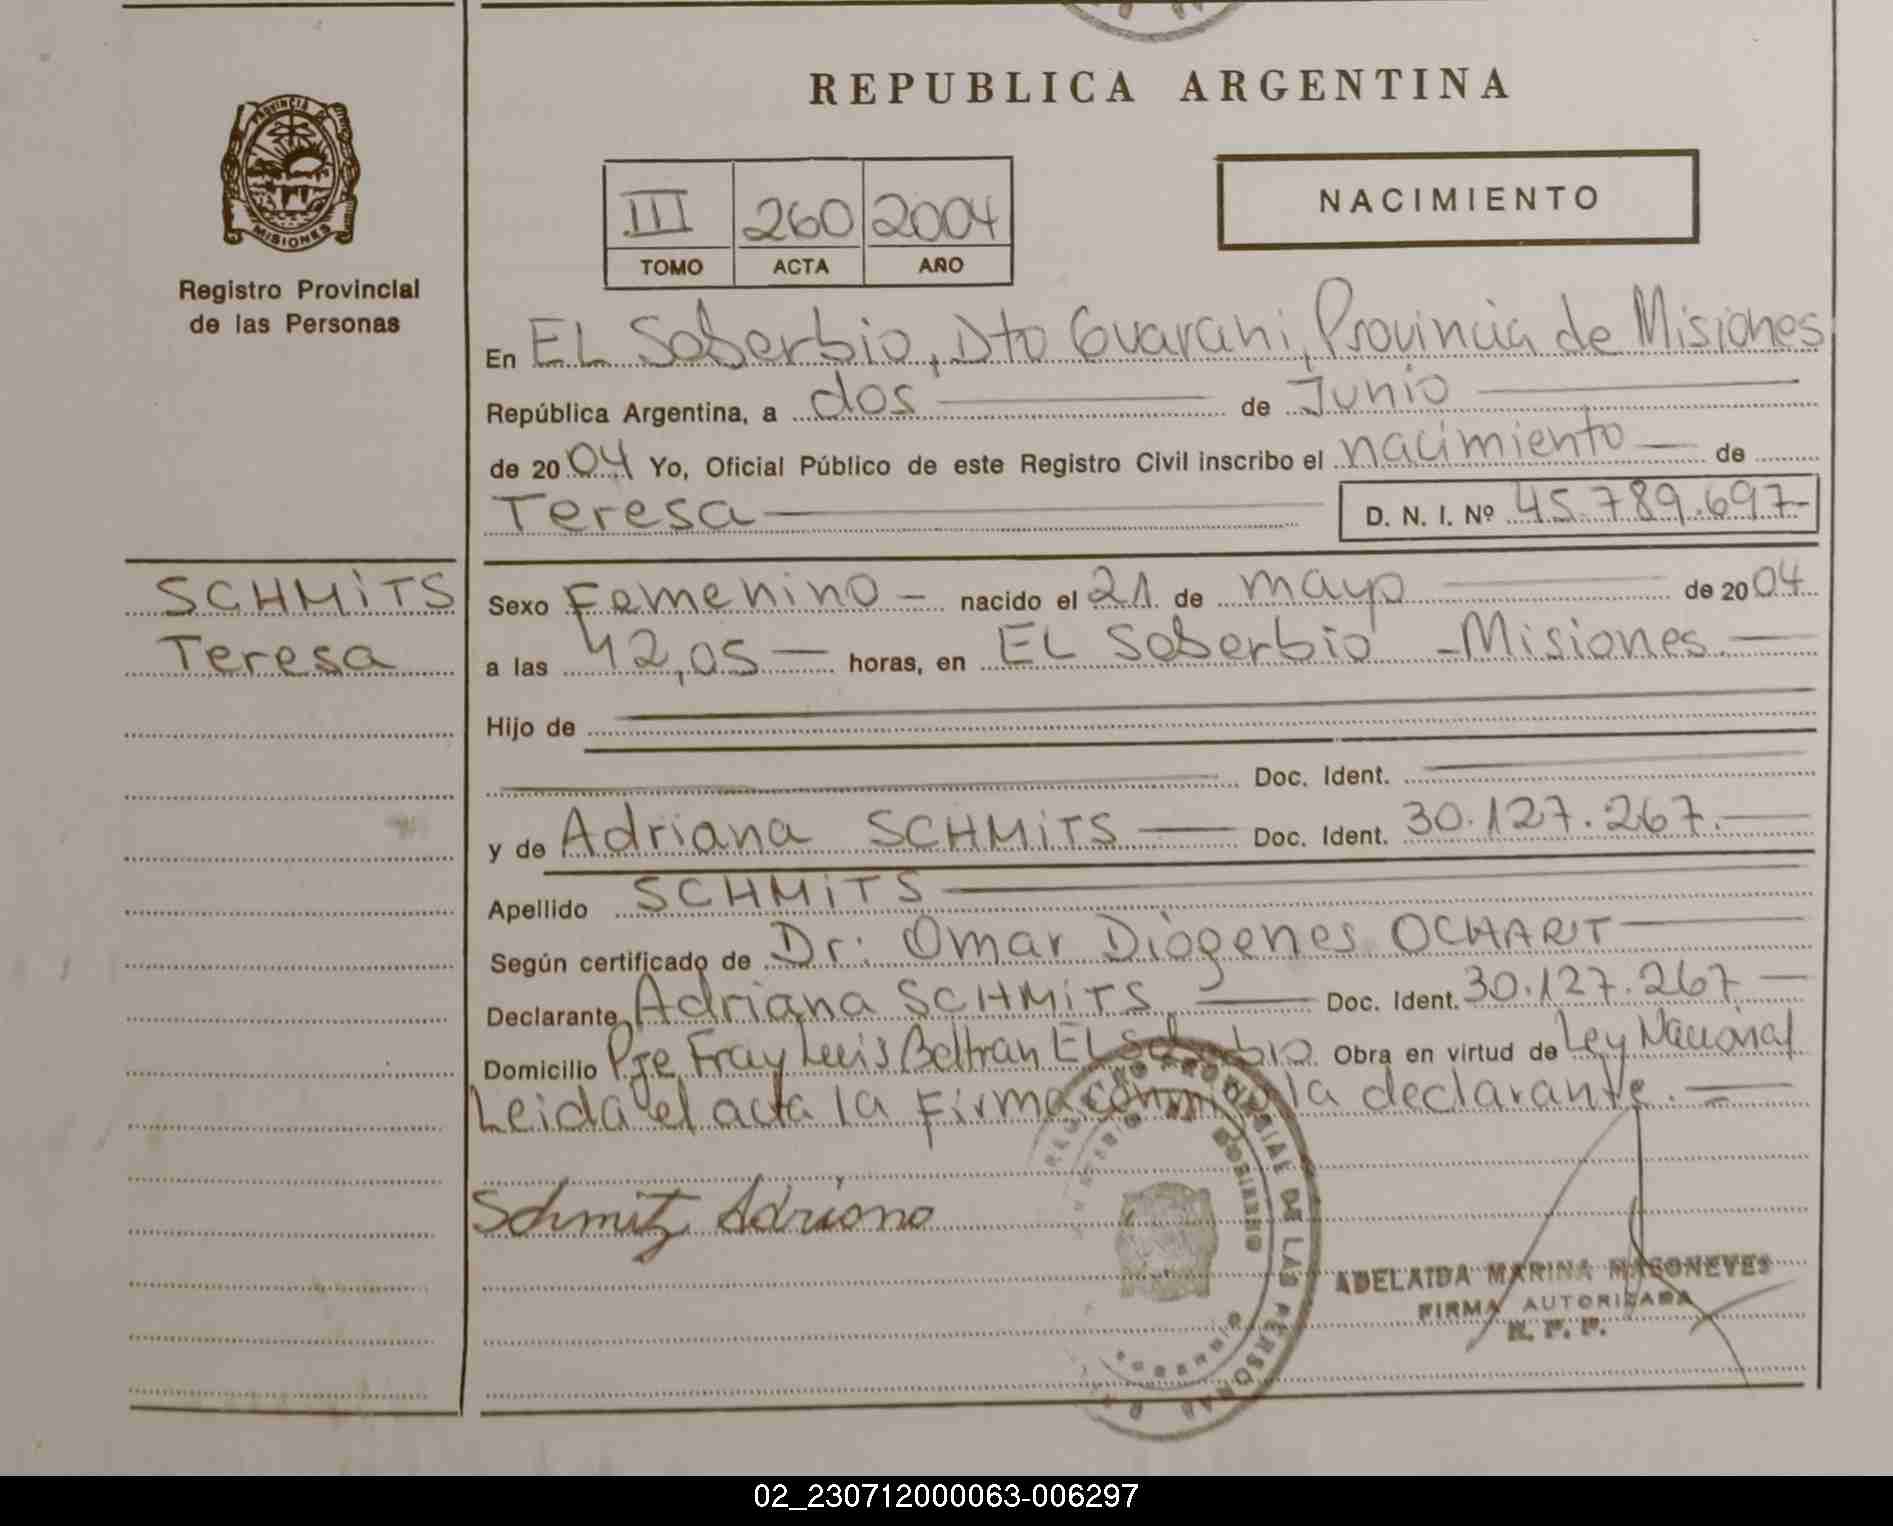 REPUBLICA ARGENTINA
PROVINCIA DE
MISIONES
Registro Provincial
de las Personas
III 260 2004
TOMO ACTA AÑO
NACIMIENTO
En EL Soberbio, Dto Guarani, Provincia de Misiones
República Argentina, a dos de Junio
de 2004 Yo, Oficial Público de este Registro Civil inscribo el nacimiento de
Teresa D. N. I. Nº 45.789.697-
SCHMiTS
Teresa
Sexo Femenino nacido el 21 de mayo de 2004
a las 12,05 horas, en EL Soberbio - Misiones
Hijo de
Doc. Ident.
y de Adriana SCHMiTS Doc. Ident. 30.127.267.
Apellido SCHMiTS
Según certificado de Dr: Omar Diògenes OCHART
Declarante Adriana SCHMiTS Doc. Ident. 30.127.267
Domicilio Pje Fray Luis Beltran EL Soberbio Obra en virtud de Ley Nacional
Leida el acta la Firma conmigo la declarante.
Schmitz Adriana
DE LAS PERSONAS
GOBIERNO
ADELAIDA MARINA MASONEVES
FIRMA AUTORIZADA
R. P. P.
02_230712000063-006297